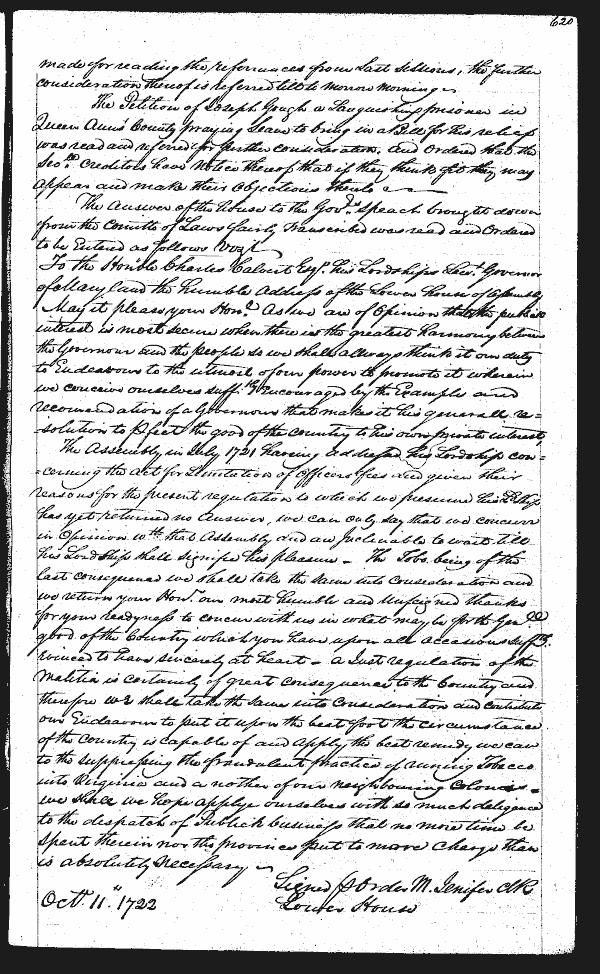 620
made for reading the referrances from Last Sessions, the further
consideration thereof is referred till to morrow morning
The Petition of Joseph Gough a Languishing prisoner in
Queen Ann's County praying Leave to bring in a Bill for his relief
was read and referred for further consideration, and Ordered that the
Creditors have notice thereof that if they think fit they may
appear and make their Objections thereto
The Answer of the house to the Gov.rs Speach brought down
from the Comitte of Laws fairly Transcribed was read and Ordered
to be Entered as follows Vizt
To the Honble Charles Calvert Esqr. his Lordships Lieut. Governor
of Maryland the humble Address of the Lower house of Assembly
May it please your Honr. As we are of Opinion that the publick
interest is most secure when there is the greatest Harmony between
the Governour and the people so we shall allways think it our duty
to Endeavour to the utmost of our power to promote it wherein
we conceive ourselves suff.tly Encouraged by the Example and
recomendation of a Governour that makes it his generall re=
solution to prefect the good of the Country to his own private interest,
The Assembly in July 1721 having addressed his Lordship con=
=cerning the Act for Limitation of Officers fees and given their
reasons for the present regulation to which we presume his Ldship
has yet returned no answer, we can only say that we concurr
in Opinion wth that Assembly and are Inclinable to wait till
his Lordship shall signifie his pleasure - The Tobo. being of the
last consequence we shall take the same into Consideration and
we return your Honr. our most humble and Unfeigned thanks
for your readyness to concur with us in what may be for the Genll
good of the Country which you have upon all occasions suff.tly
vinced to have sincerely at heart - a Just regulation of the
Militia is certainly of great consequence to the Country and
therefore we shall take the same into Consideration and contribute
our Endeavours to put it upon the best foot the circumstance
of the Country is capable of and apply the best remedy we can
to the suppressing the fraudulent practice of runing Tobacco
into Virginia and a nother of our neighbouring Colonies -
we shall we hope applye ourselves with so much deligence
to the dispatch of Publick business that no more time be
spent therein nor the province put to more Charge than
is absolutely necessary
Signed p Order M. Jenifer Clk
Oct.r 11.th 1722 Lower House